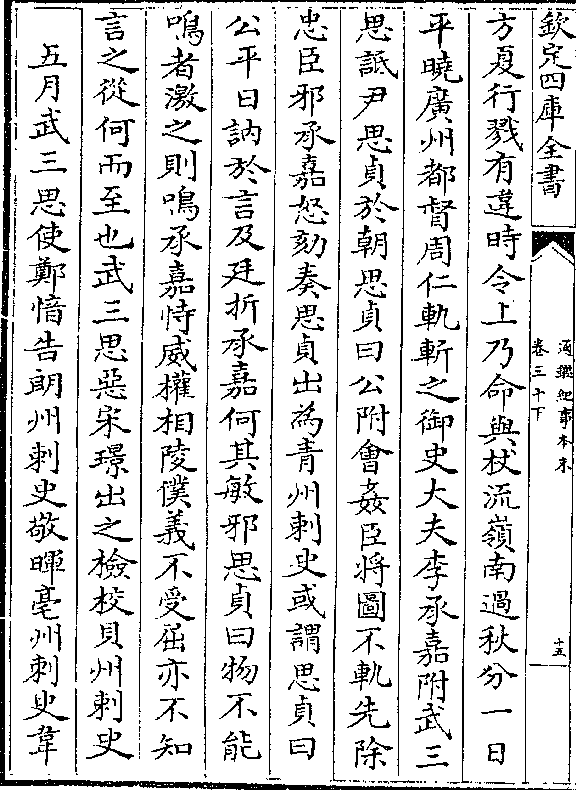 欽定四庫全書
通鑑紀事本末
卷三十下
十五
方夏行戮有違時令上乃命與杖流嶺南過秋分一日
平曉廣州都督周仁軌斬之御史大夫李承嘉附武三
思詆尹思貞於朝思貞曰公附會姦臣將圖不軌先除
忠臣邪承嘉怒劾奏思貞出為青州刺史或謂思貞曰
公平日訥於言及廷折承嘉何其敏邪思貞曰物不能
鳴者激之則鳴承嘉恃威權相陵僕義不受屈亦不知
言之從何而至也武三思惡宋璟出之檢校貝州刺史
五月武三思使鄭愔告朗州刺史敬暉亳州刺史韋